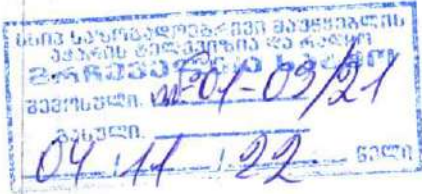 სსიპ საზოგადოებრივი მაუწყებლის
აჭარის ტელევიზია და რადიო
შემოსული. №01-03/21
გასული.
04 / 11 / 22 წელი